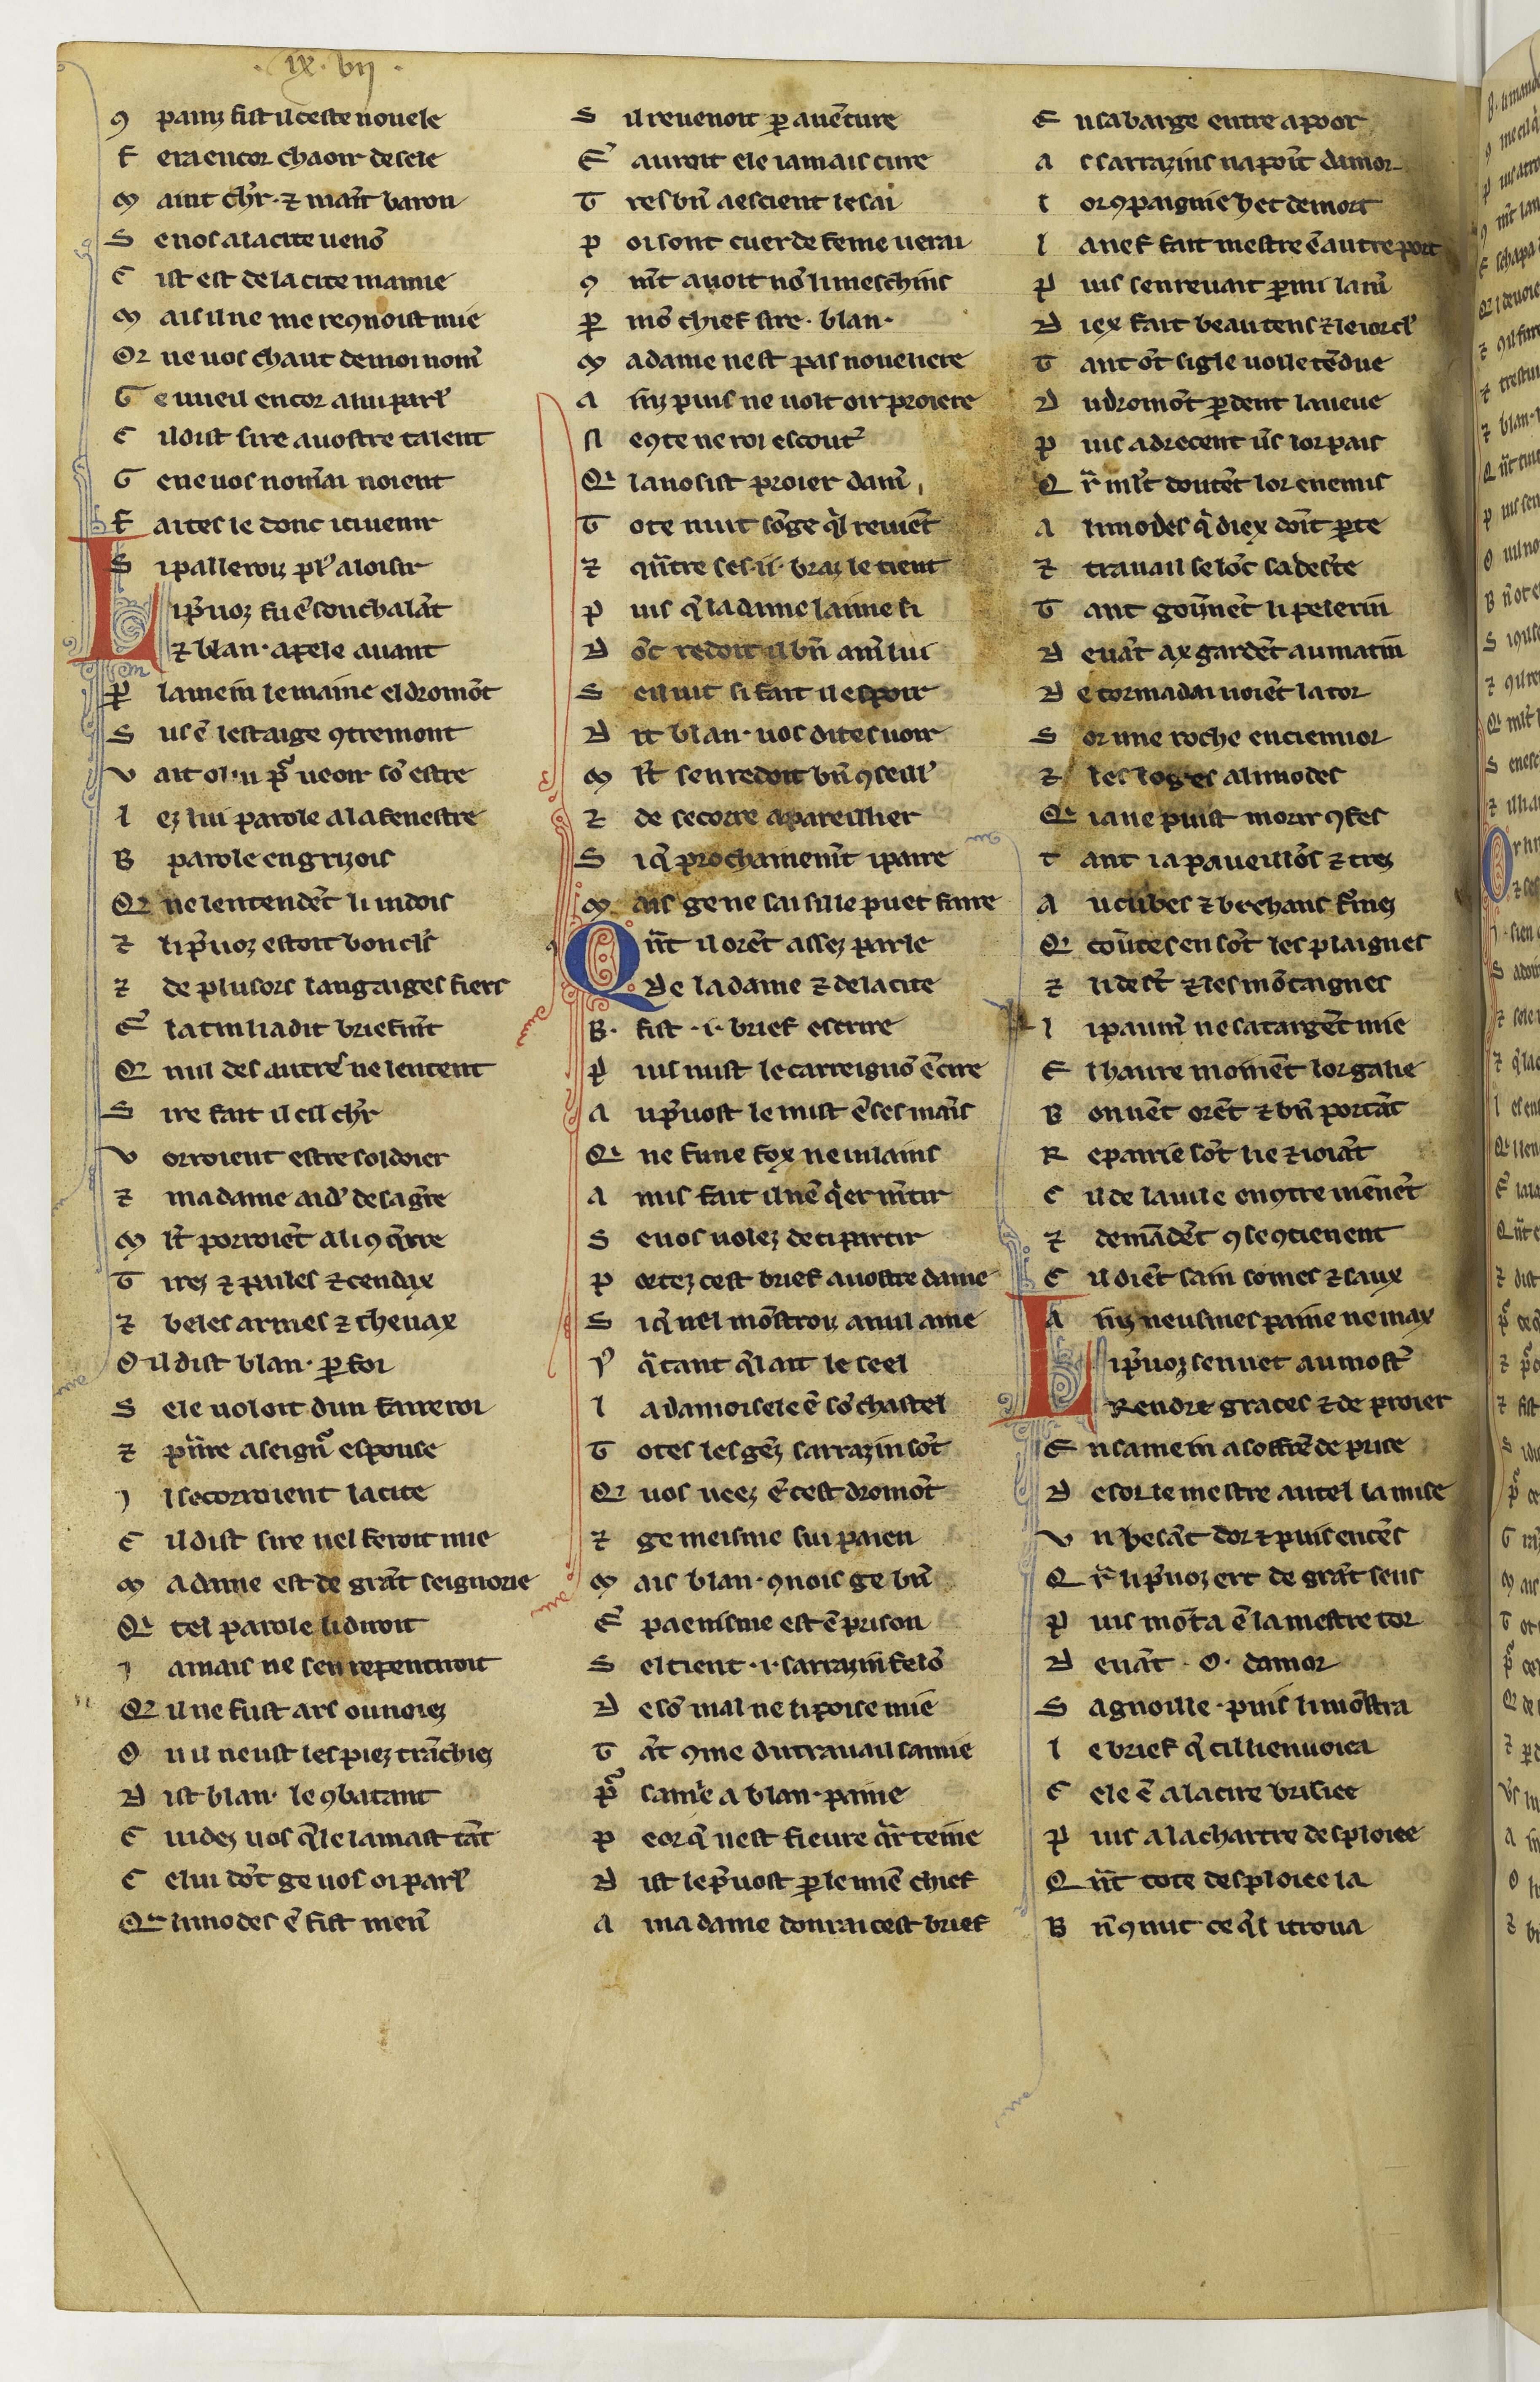 .ix. vii.
ꝯ painz fist il ceste novele
F era encor chaoir de sele
M aint chr̃. ⁊ maĩt baron
S e nos a la cite venõs
C ist est de la cite mamie
M ais il ne me reꝯnoist mie
Q ne vos chaut de moi nom̃
G e vueil encor a lui parl̃
C il dist sire a vostre talent
G e ne vos nom̃ai noient
F aites le donc ici venir
S i pallerons pl᷒ a loisir
L i p̃uoz fu ẽ son chalãt
⁊ blan. apele avant
P̱ la mein le maine el dromõt
S us ẽ lestaige ꝯtremont
V ait ol'n p̃ veoir sõ estre
L ez lui parole a la fenestre
B parole en grizois
Q ne lentendẽt li indois
⁊ li p̃uoz estoit bon cl̃s
⁊ de plusors langaiges fiers
E̾ latin li a dit briefm̃t
Q nul des autres ne lentent
S ire fait il cil chr̃
V orroient estre soldoier
⁊ ma dame aid̾ de sa gr̃re
M lt̃ porroiẽt a li ꝯq̃rre
T irez ⁊ pailes ⁊ cendax
⁊ beles armes ⁊ chevax
O il dist blan. ꝑ foi
S ele voloit dun faire roi
⁊ pñre a seignᷣ espouse
I l secorroient la cite
C il dist sire nel feroit mie
M a dame est de grãt seignorie
Q tel parole li diroit
I amais ne sen repentiroit
Q il ne fust ars ou noiez
O u il neust les piez trãchiez
D ist blan. le ꝯbatant
C uidez vos q̃le lamast tãt
C elui dõt ge vos oi parl̃
Q limodes ẽ fist men̾
S il revenoit ꝑ avẽture
E̾ auroit ele iamais cure
T res bñ a escient le sai
P oi sont cuer de feme verai
ꝯ m̃t avoit nõ li meschins
ꝑ mõ chief sire. blan.
M a dame nest pas noveliere
A inz puis ne volt oir proiere
N e ꝯte ne roi escout̾
Q la nosist proier dam̾
T ote nuit sõge q̃l reviẽt
⁊ qñtre ses .ii. braz le tient
P uis q̃ la dame laime si
D õc redoit il bñ am̾ lui
S en uit si fait il espoir
D it blan. vos dites voir
M lt̃ sen redoit bñ ꝯseill̾
⁊ de secorre apareillier
S i q̃ prochainem̃t i paire
M ais ge ne sai sil le puet faire
Q ñt il orẽt assez parle
De la dame ⁊ de la cite
B. fist .i. brief escrire
P uis mist le carreignõ ẽ cire
A u p̃uost le mist ẽ ses mains
Q ne fu ne fox ne vilains
A mis fait il nẽ q̃er m̃tir
S e vos volez de ci partir
P ortez cest brief a vostre dame
S i q̃ nel mõstroiz a nul ame
P̾ q̃tant q̃l ait le seel
L a damoisele ẽ sõ chastel
T otes les gẽz sarrazin sõt
Q vos veez ẽ cest dromõt
⁊ ge meisme sui paien
M ais blan. ꝯnois ge bñ
E̾ paenisme est ẽ prison
S el tient .i. sarrazin felõ
D e sõ mal ne li poise mie
T ãt ꝯme du travail samie
P̃ samie a blan. paine
P eor q̃ nest fievre q̃rteine
D ist le p̃uost ꝑ le miẽ chief
A ma dame donrai cest brief
E n la barge entre a poor
A s sarrazins na poĩt damor
L or ꝯpaignie het de mort
L a nef fait mestre ẽ autre port
P uis senrevait ꝑmi la m̾
D iex fait beau tens ⁊ le ior cl̾
T ant õt sigle voile tẽdue
D u dromõt ꝑdent la veue
P uis adrecent ṽs lor pais
Q r̃ mlt̃ doutẽt lor enemis
A limodes q̃ diex doĩt ꝑte
⁊ travail se lõc sa des̾te
T ant gov̾nẽt li pelerin
D evãt ax gardẽt au matin
D e tormadai voiẽt la tor
S or une roche encienior
⁊ les loges alimodes
Q ia ne puist morir ꝯfes
T ant i a paveillõs ⁊ trez
A ucubes ⁊ brehans f̾mez
Q cov̾tes en sõt les plaignes
⁊ li des̾t ⁊ les mõtaignes
L i paum̾ ne satargẽt mie
E l havre moinẽt lor galie
B on vẽt orẽt ⁊ bñ portãt
R epairie sõt lie ⁊ ioiãt
C il de la vile en ꝯtre viẽnẽt
⁊ demãdẽt ꝯ se ꝯtienent
C il diẽt sain somes ⁊ saux
A inz neusmes paine ne max
L i p̃uoz sen vet au most̾
Rendre graces ⁊ de proier
E n sa mein a soffrẽde prise
D esor le mestre autel la mise
V n besãt dor ⁊ puis encẽs
Q r̃ li p̃uoz ert de grãt sens
P uis mõta ẽ la mestre tor
D evãt .O. damor
S agnoille. puis li mõstra
L e brief q̃ cil li envoiea
C ele ẽ a la cire brisiee
P uis a la chartre desploiee
Q ñt tote desploiee la
B ñ ꝯnuit ce q̃l i trova